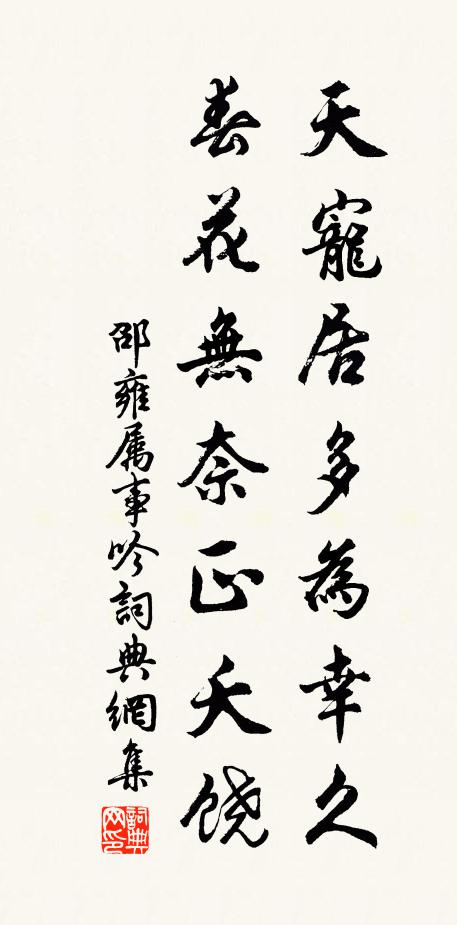 天寵居多為幸久
春花無奈正夭饶
邵雍属事吟詞典網集
詞典网印